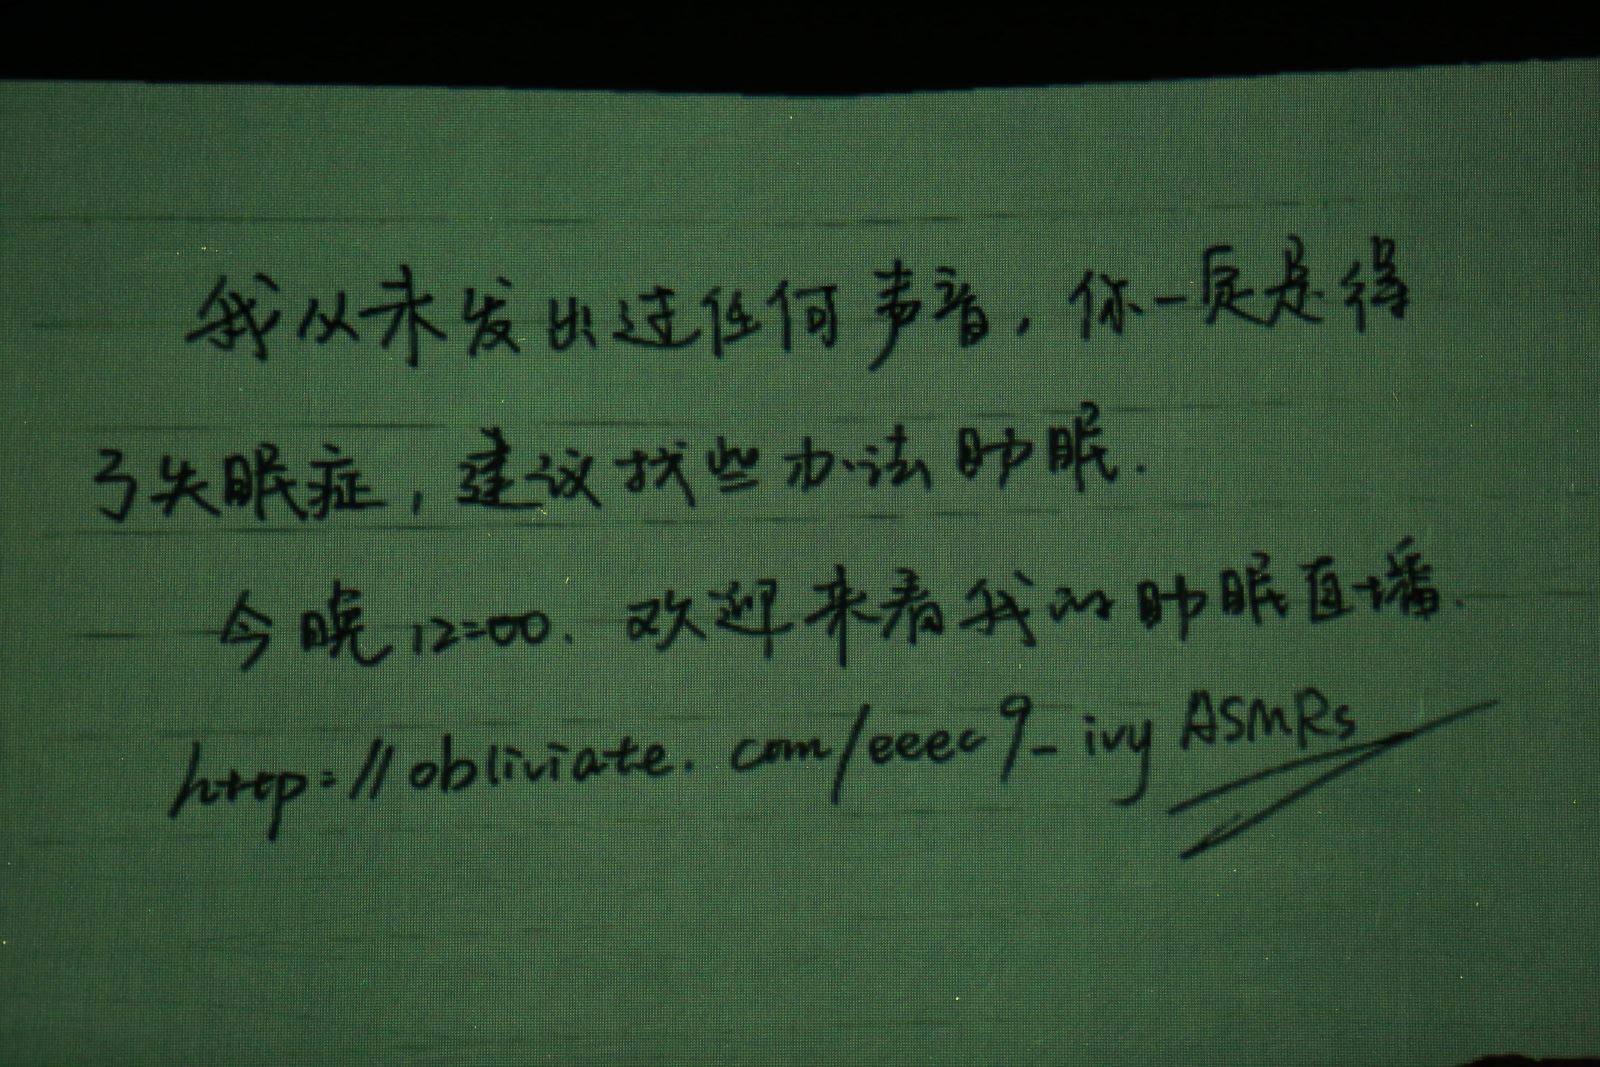 我从未发出过任何声音，你一定是得
了失眠症，建议找些办法助眠.
今晚12:00. 欢迎来看我的助眠直播.
http://obliviate.com/eeec9_ivyASMRs